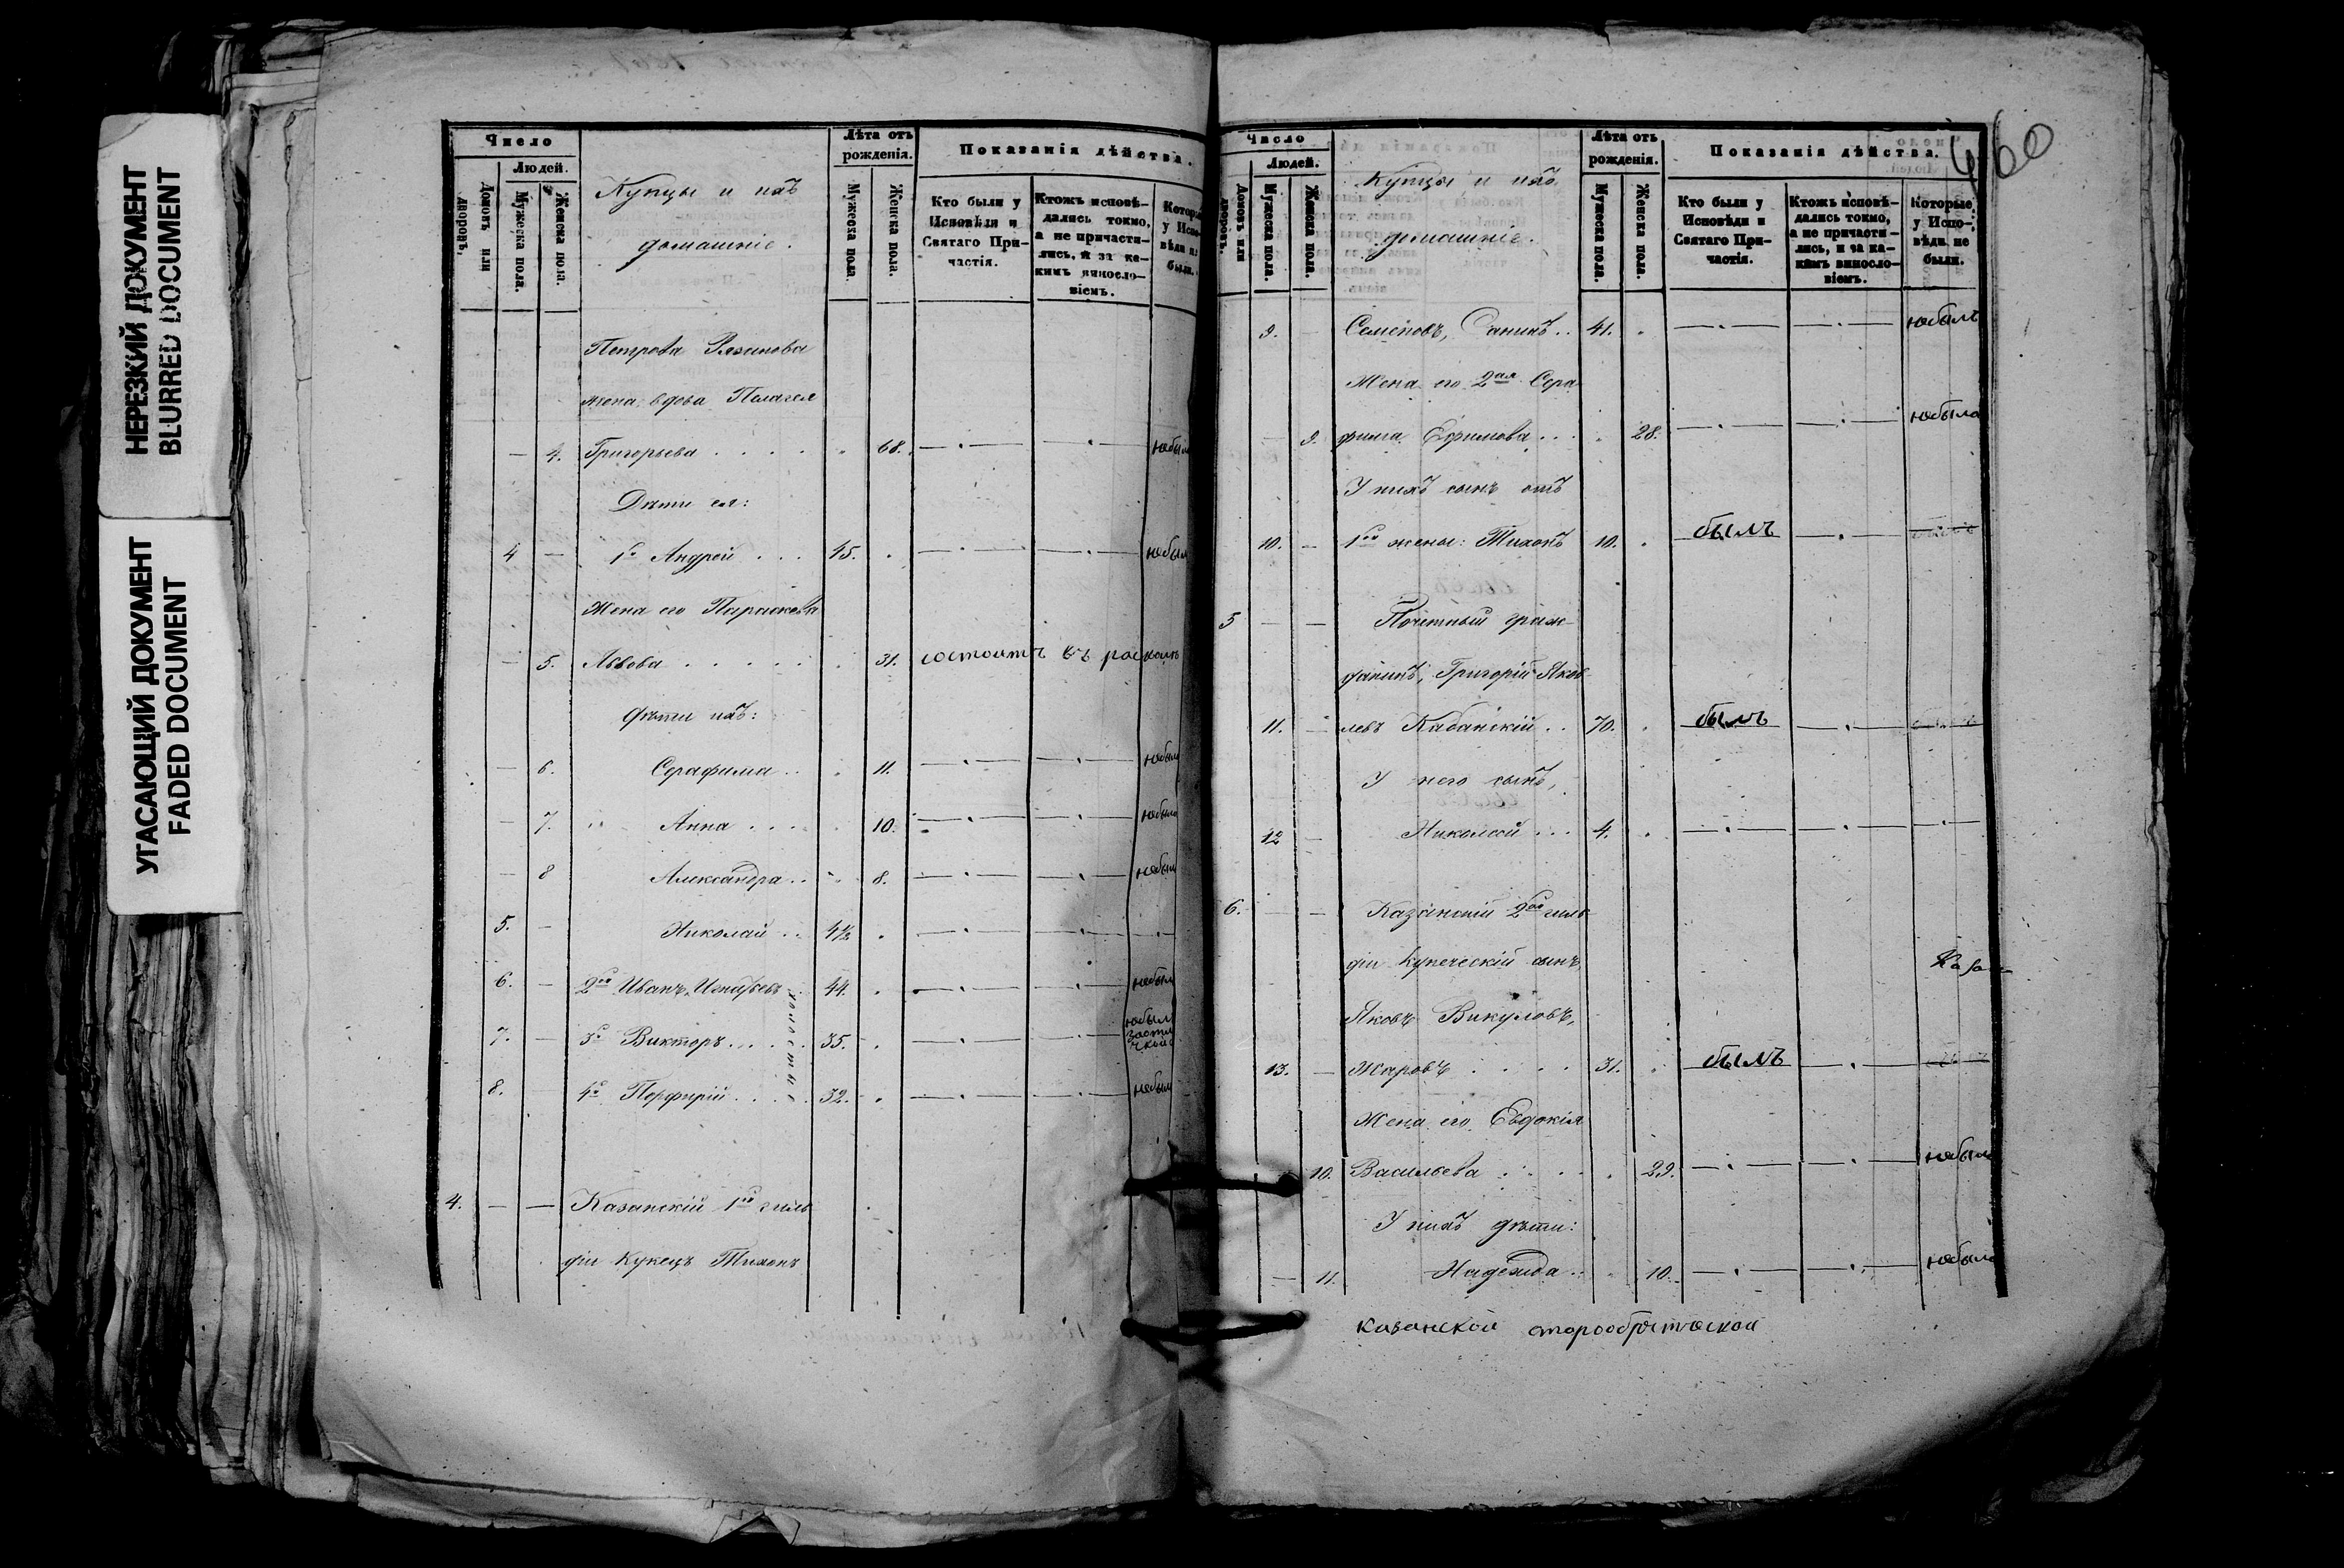 НЕРЕЗКИЙ ДОКУМЕНТ
BLURRED DOCUMENT
УГАСАЮЩИЙ ДОКУМЕНТ
FADED DOCUMENT
Число
Людей.
Домовъ или дворовъ.
Мужеска пола.
Женска пола.
Купцы и ихъ
домашніе.
Лѣта отъ
рожденія.
Мужеска пола.
Женска пола.
Показанія дѣйства.
Кто были у
Исповѣди и
Святаго При-
частія.
Ктожъ исповѣ-
дались токмо,
а не причасти-
лись, и за ка-
кимъ виносло-
віемъ.
Котор
у Испо
вѣди н
были.
Петрова Рязанова
жена вдова Пелагея
— 4. Григорьева . . . . 68. — . — — . — небыла
Дѣти ея:
4 — 1й Андрей . . . 45. . — . — — . — небыл
Жена его Параскева
— 5. Львова . . . . . 31. состоитъ въ расколѣ
дѣти ихъ:
— 6. Серафима . . 11. — . — — . — небыла
— 7. Анна . . . . 10. — . — — . — небыла
— 8 Александра . . 8. — . — — . — небыла
5. — Николай . . 4½ . — . — — . — .
6. — 2й Иванъ Игнатьевъ 44. . — . — — . — небыл
7. — 3й Викторъ . . . . 35. . — . — — . — небыл
8. — 4й Порфирій . . . . 32. . — . — — . — небыл
холостые
4. — — Казанскій 1й гиль
діи Купецъ Тихонъ
460
Число
Людей.
Домовъ или дворовъ.
Мужеска пола.
Женска пола.
Купцы и ихъ
домашніе.
Лѣта отъ
рожденія.
Мужеска пола.
Женска пола.
Показанія дѣйства.
Кто были у
Исповѣди и
Святаго При-
частія.
Ктожъ исповѣ-
дались токмо,
а не причасти-
лись, и за ка-
кимъ виносло-
віемъ.
Которые
у Испо-
вѣди не
были.
9. — Семеновъ, Санинъ . . 41. . — . — — . — небылъ
Жена его 2ая Сера
— 9. фима Ефимова . . . 28. — . — — . — небыла
У нихъ сынъ отъ
10. — 1ой жены: Тихонъ 10. . былъ — . —
5 — — Почетный граж-
данинъ, Григорій Яков
11. — левъ Кабанскій . . 70. . былъ — . —
У него сынъ,
12 — Николай . . . 4. . — . — — . — — . —
6. — — Казанскій 2ой гиль
діи Купеческій сынъ,
Яковъ Викуловъ,
13. — Жаровъ . . . . 31. . былъ — . —
Жена его Евдокія
10. Васильева . . . . 29. — . — — . — небыла
У нихъ дѣти:
— 11. Надежда . . 10. — . — — . — небыла
Казанской старообрядческой